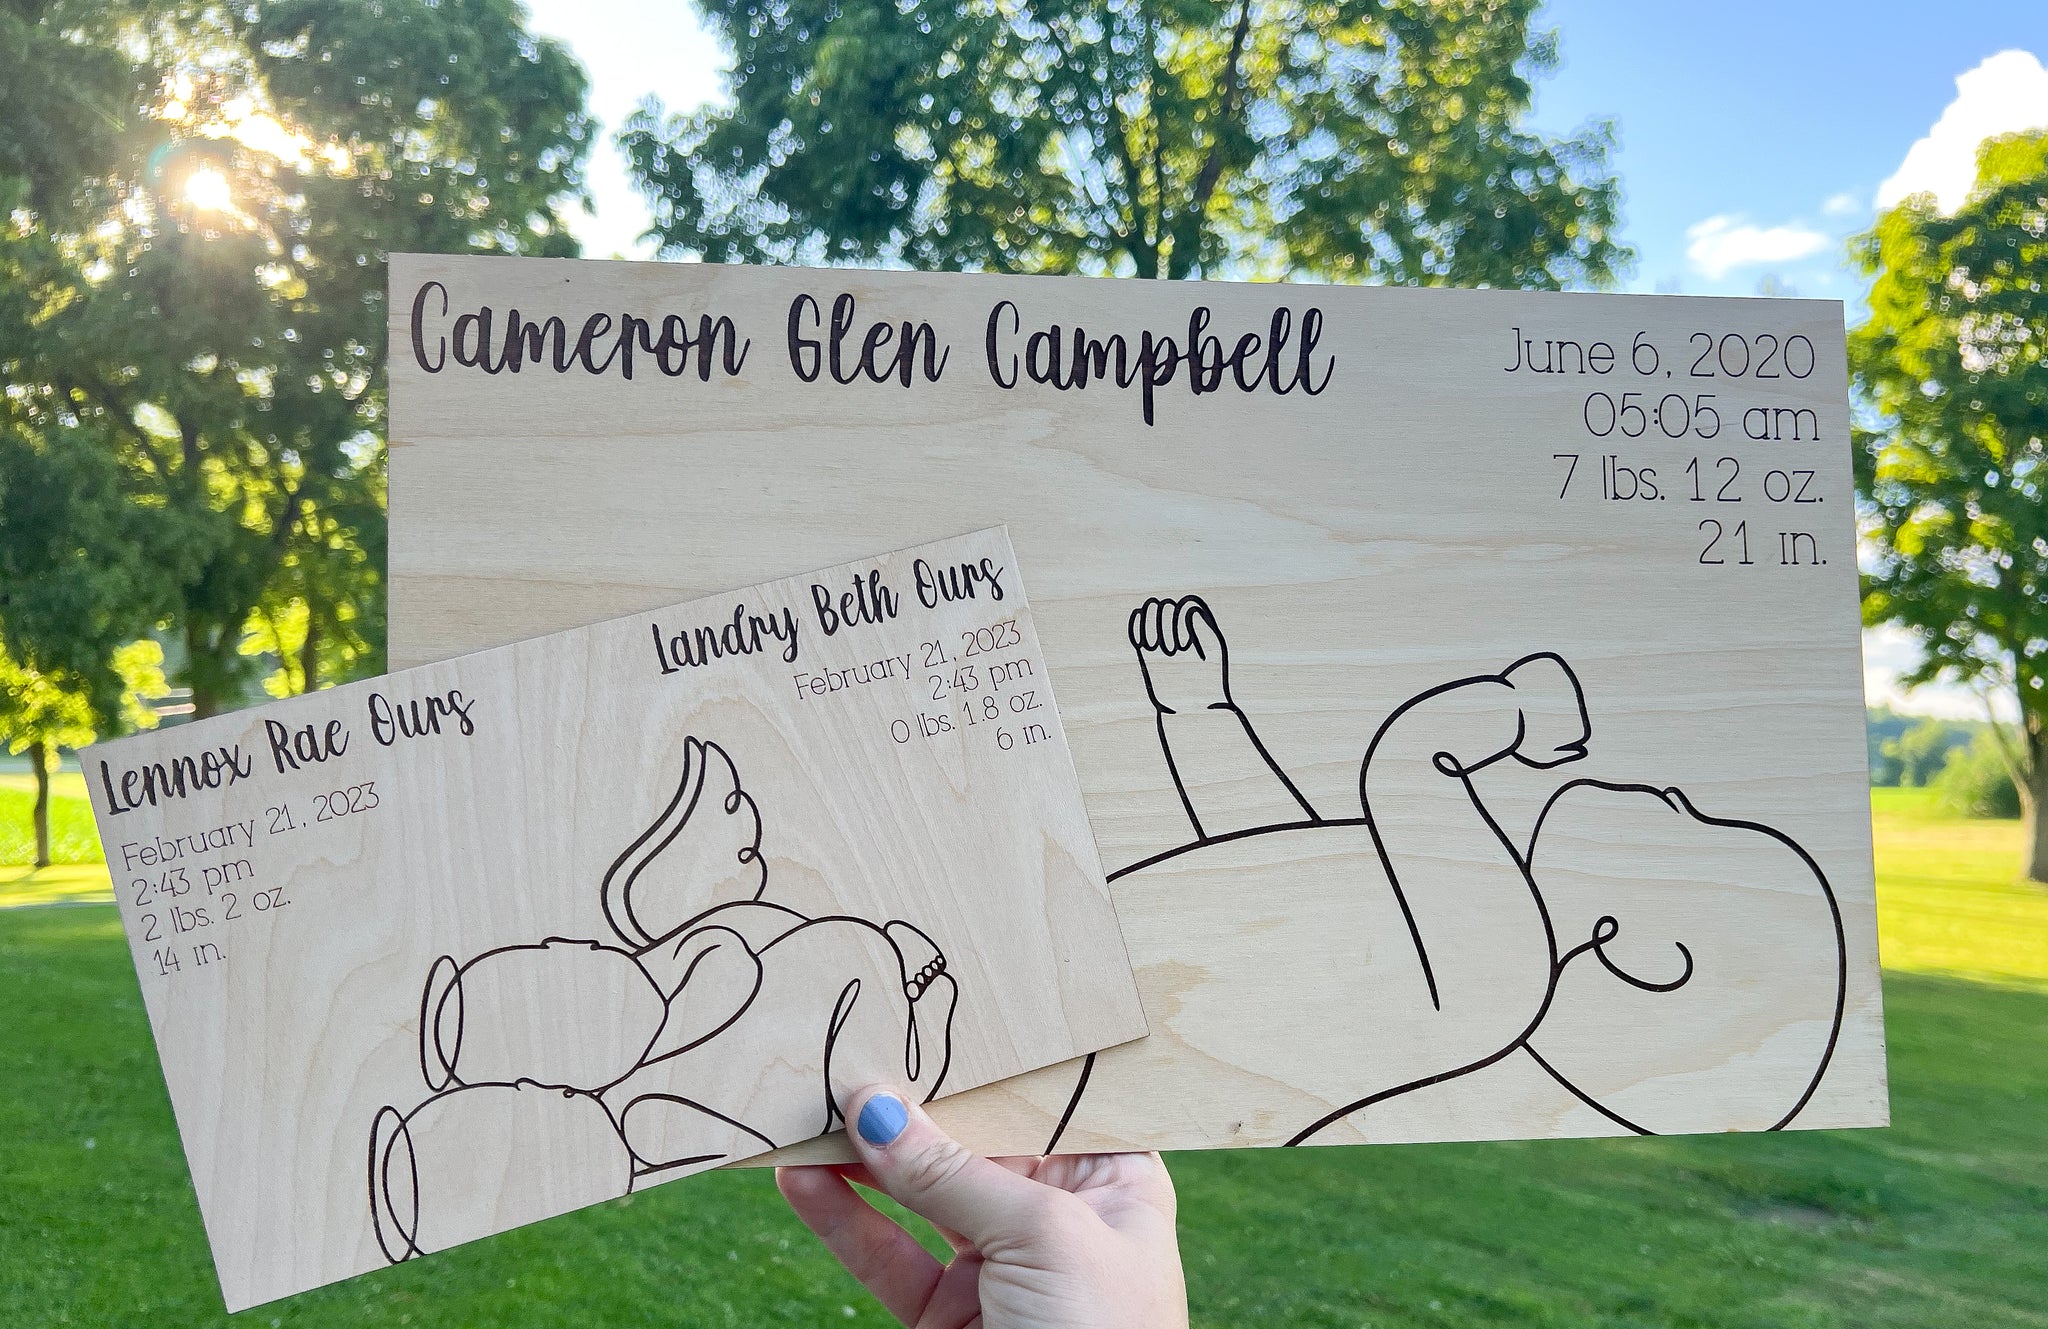 Cameron Glen Campbell
June 6, 2020
05:05 am
7 lbs. 12 oz.
21 in.
Lennox Rae Ours
February 21, 2023
2:43 pm
2 lbs. 2 oz.
14 in.
Landry Beth Ours
February 21, 2023
2:43 pm
0 lbs. 1.8 oz.
6 in.